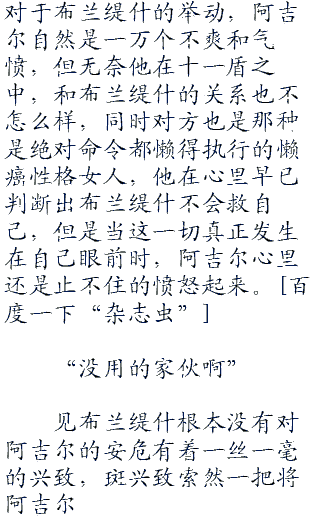 对于布兰缇什的举动，阿吉
尔自然是一万个不爽和气
愤，但无奈他在十一盾之
中，和布兰缇什的关系也不
怎么样，同时对方也是那种
是绝对命令都懒得执行的懒
癌性格女人，他在心里早已
判断出布兰缇什不会救自
己，但是当这一切真正发生
在自己眼前时，阿吉尔心里
还是止不住的愤怒起来。[百
度一下“杂志虫”]
“没用的家伙啊”
见布兰缇什根本没有对
阿吉尔的安危有着一丝一毫
的兴致，斑兴致索然一把将
阿吉尔